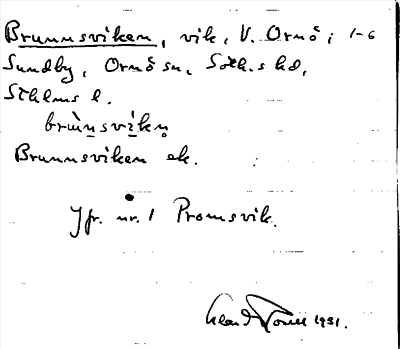 Brunnsviken, vik, V. Ornö; 1-6
Sundby, Ornö sn, Soth.s hd,
Sthlms l.
brùnsvìkn̥
Brunnsviken ek.
Jfr. nr. 1 Promsvik.
1931.